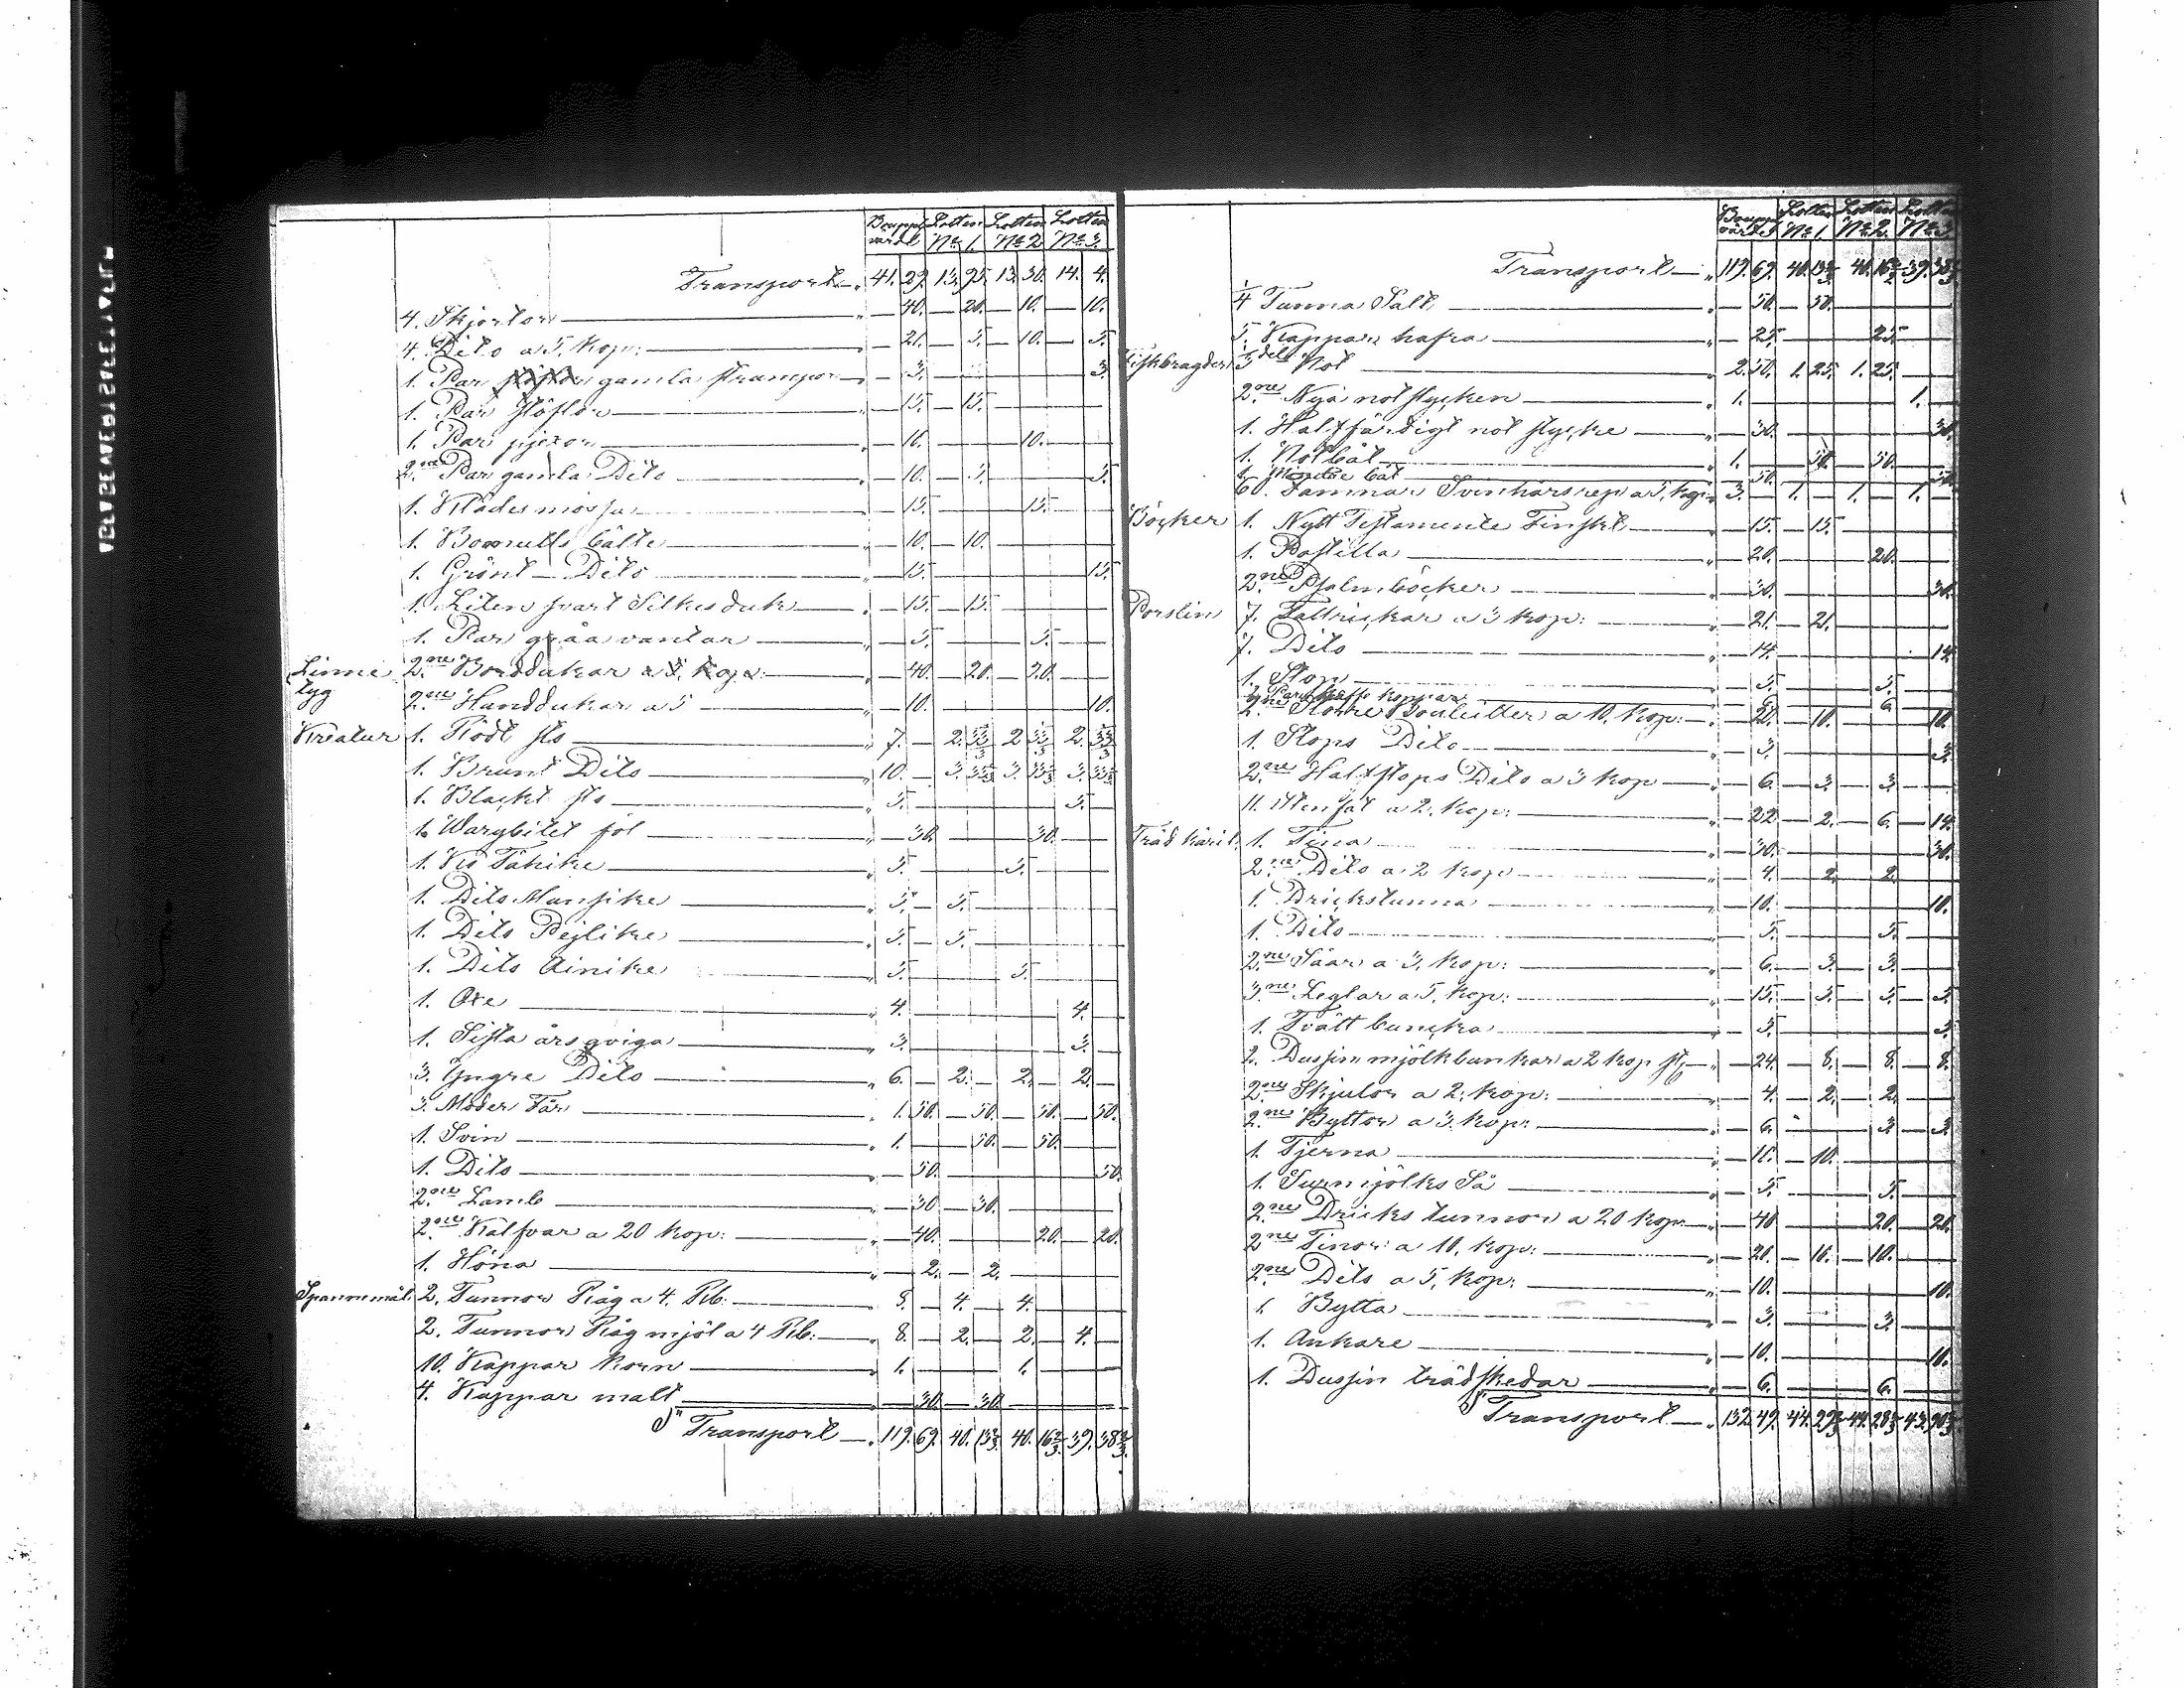 Bouppt Lotten Lotten Lotten
värde No 1. No 2. No 3.
Transport 41. 29. 13. 95. 13. 30. 14. 4.
4. Skjortor 40. 20. 10. 10.
4. Dito a 5. kop: 21. 5. 10. 5.
1. Par gamla strumpor 3. 3.
1. Par stöflor 15. 15.
1. Par pjexor 10. 10.
2ne Par gamla Dito 10. 5. 5.
1. Klädesmössa 15. 15.
1. Bomulls bälte 10. 10.
1. Grönt Dito 15. 15.
1. Liten svart Silkesduk 15. 15.
1. Par gråa vantar 5. 5.
Linne 2ne Borddukar 40. 20. 20.
tyg 2ne Handdukar a 5 10. 10.
Kreatur 1. Rödt sto 7. 2. 33 1/3 2. 33 1/3 2. 33 1/3
1. Brunt Dito 10. 3. 33 1/3 3. 33 1/3 3. 33 1/3
1. Blackt sto 5. 5.
1. Wargbitet föl 30. 30.
1. Ko Tähike 5. 5.
1. Dito Mansike 5. 5.
1. Dito Pejlike 5. 5.
1. Dito Ainike 5. 5.
1. Oxe 4. 4.
1. Sista års qviga 3. 3.
3. Yngre Dito 6. 2. 2. 2.
3. Moder Får 1. 50. 50. 50. 50.
1. Svin 1. 50. 50.
1. Dito 50. 50.
2ne Lamb 30 30.
2ne Kalfvar a 20 kop: 40. 20. 20.
1. Höna 2. 2.
Spannemål 2. Tunnor Råg a 4. Rb. 8. 4. 4.
2. Tunnor Råg mjöl a 4 Rb: 8. 2. 2. 4.
10. Kappar Korn 1. 1.
4. Kappar malt 30 30
Transport 119. 69. 40. 13 2/3. 40. 16 2/3. 39. 38 2/3.
Bouppt Lotten Lotten Lotten
värdet No 1. No 2. No 3.
Transport 119. 69. 40. 13 2/3 40. 16 2/3 39. 38 2/3
1/4 Tunna Salt 50. 50.
5. Kappar hafra 25. 25.
Fiskbragder 1/3 del Not 2. 50. 1. 25. 1. 25.
2ne Nya notstycken 1. 1.
1. Halffärdigt not stycke 30. 30.
1. Notbåt 1. 50. 50.
1. Mindre båt 50. 50.
60. Famnar Svinhårsrep a 5. kop: 3. 1. 1. 1.
Böcker 1. Nytt Testamente Finskt 15. 15.
1. Postilla 20. 20.
2ne Psalmböcker 30. 30.
Porslin 7. Talrickar a 3 kop: 21. 21.
7. Dito 14. 14.
1. Stop 5. 5.
2ne Par kaffe koppar 6. 6.
2ne Större Bouteiller a 10. kop: 20. 10. 10.
1. Stops Dito 3. 3.
2ne Halfstops Dito a 3 kop 6. 3. 3.
11. Stenfat a 2. kop: 22 2. 6. 14.
Träd käril. 1. Tina 30. 30.
2ne Dito a 2 kop 4. 2. 2.
1. Drickstunna 10. 10.
1. Dito 5. 5.
2ne Såar a 3. kop: 6. 3. 3.
3ne Leglar a 5. kop: 15. 5. 5. 5.
1. Tvätt buncka 5. 5.
1. Dussin mjölkbunkar a 2 kop st 24. 8. 8. 8.
2ne Skjulor a 2. kop: 4. 2. 2.
2ne Byttor a 3. kop: 6. 3. 3.
1. Tjerna 10. 10.
1. Surmjölks Så 5. 5.
2ne Dricks tunnor a 20 kop 40 20. 20.
2ne Tinor a 10. kop: 20. 10. 10.
2ne Dito a 5. kop: 10. 10.
1. Bytta 3. 3.
1. Ankare 10. 10.
1. Dussin trädskedar 6. 6.
Transport 132. 49. 44. 29 2/3 44. 28 2/3 43. 90 2/3